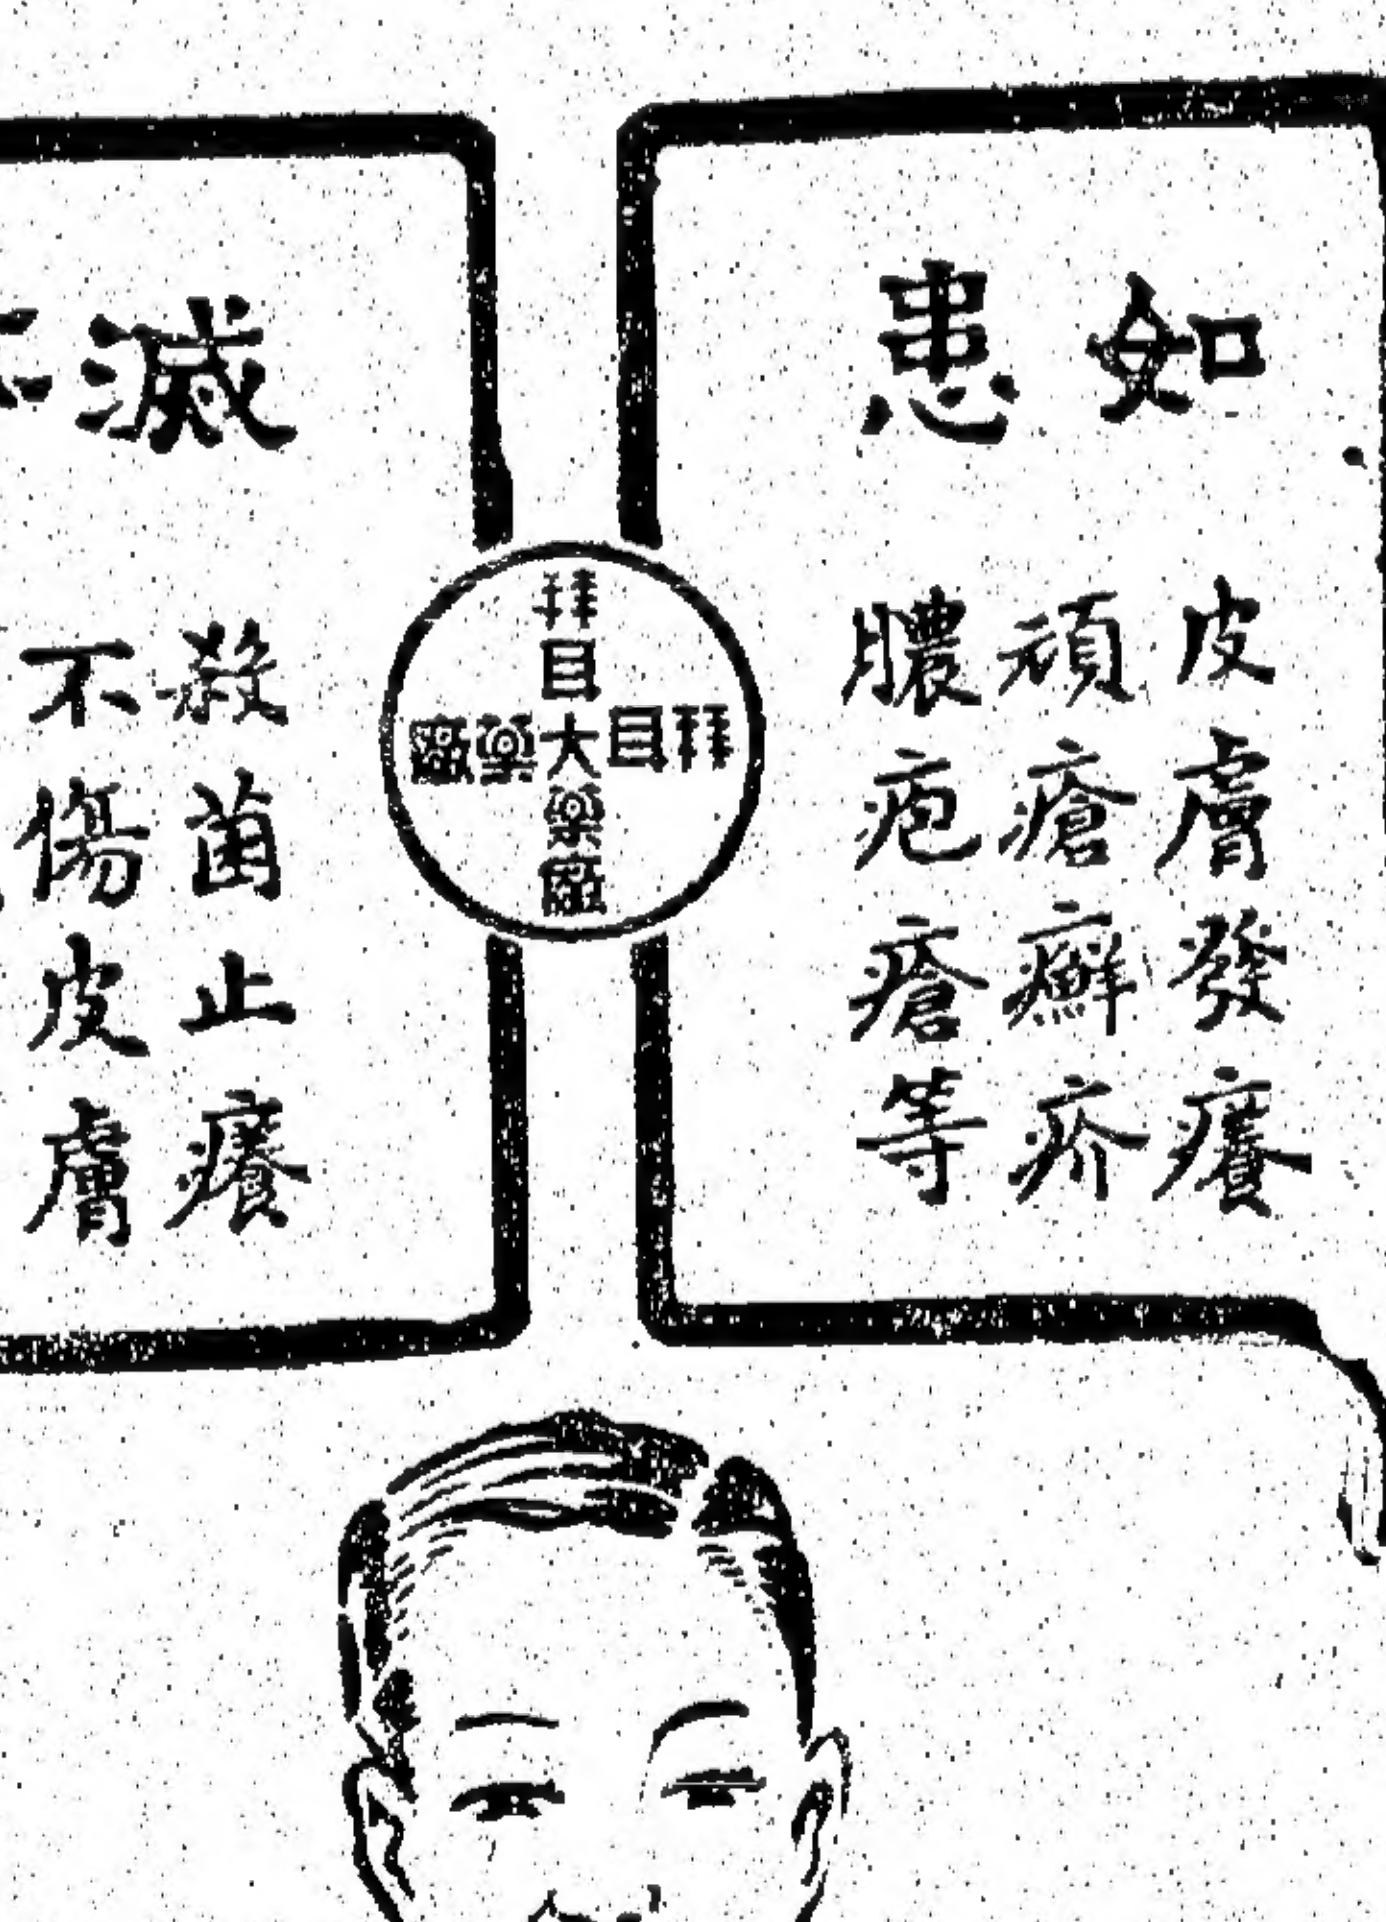 如患
皮膚發癢
頑瘡癬疥
膿疱瘡等
拜耳大藥廠
拜耳大藥廠
滅
殺菌止癢
不傷皮膚